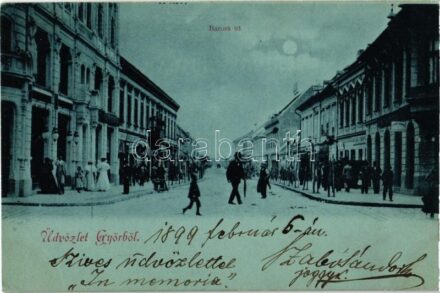 Baross út
darabanth
Üdvözlet Győrből.
1899 február 6-án.
Szives üdvözlettel
"In memoria".
Szabó Sándor